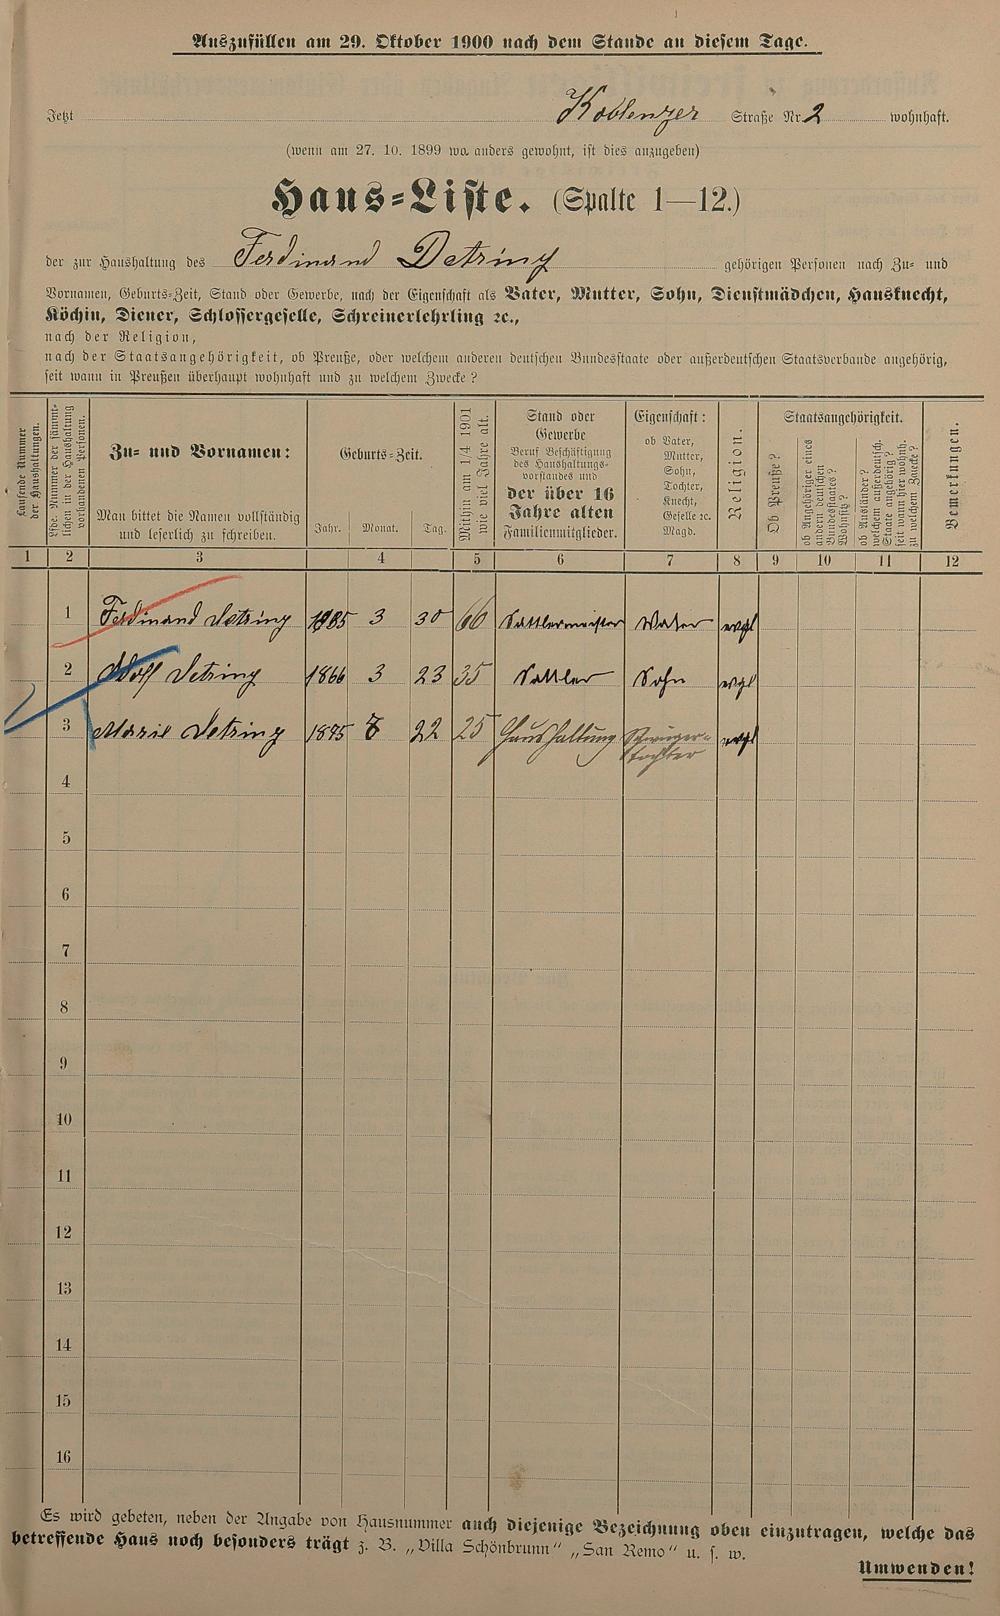 Auszufüllen am 29. Oktober 1900 nach dem Stande an diesem Tage.
Jetzt Koblenzer Straße Nr. 2 wohnhaft.
(wenn am 27. 10. 1899 wo anders gewohnt, ist dies anzugeben)
Haus-Liste. (Spalte 1—12.)
der zur Haushaltung des Ferdinand Detring gehörigen Personen nach Zu- und
Vornamen, Geburts-Zeit, Stand oder Gewerbe, nach der Eigenschaft als Vater, Mutter, Sohn, Dienstmädchen, Hausknecht,
Köchin, Diener, Schlossergeselle, Schreinerlehrling ꝛc.,
nach der Religion,
nach der Staatsangehörigkeit, ob Preuße, oder welchem anderen deutschen Bundesstaate oder außerdeutschen Staatsverbande angehörig,
seit wann in Preußen überhaupt wohnhaft und zu welchem Zwecke?
Laufende Nummer
der Haushaltungen.
Lfde. Nummer der sämmt-
lichen in der Haushaltung
vorhandenen Personen.
Zu- und Vornamen:
Man bittet die Namen vollständig
und leserlich zu schreiben.
Geburts-Zeit.
Jahr. Monat. Tag.
Mithin am 1/4 1901
wie viel Jahre alt.
Stand oder
Gewerbe
Beruf Beschäftigung
des Haushaltungs-
vorstandes und
der über 16
Jahre alten
Familienmitglieder.
Eigenschaft:
ob Vater,
Mutter,
Sohn,
Tochter,
Knecht,
Geselle ꝛc.
Magd.
Religion.
Staatsangehörigkeit.
Ob Preuße?
ob Angehöriger eines
andern deutschen
Bundesstaates?
Wohnsitz?
ob Ausländer?
welchem außerdeutsch.
Staate angehörig?
seit wann hier wohnh.
zu welchem Zwecke?
Bemerkungen.
1 2 3 4 5 6 7 8 9 10 11 12
1 Ferdinand Detring 3 30 66 Sattlermeister Vater evgl
2 Adolf Detring 1866 3 23 35 Sattler Sohn evgl
3 Marie Detring 1875 8 22 25 Haushaltung Schwieger-
tochter evgl
4
5
6
7
8
9
10
11
12
13
14
15
16
Es wird gebeten, neben der Angabe von Hausnummer auch diejenige Bezeichnung oben einzutragen, welche das
betreffende Haus noch besonders trägt z. B. „Villa Schönbrunn“ „San Remo“ u. s. w.
Umwenden!